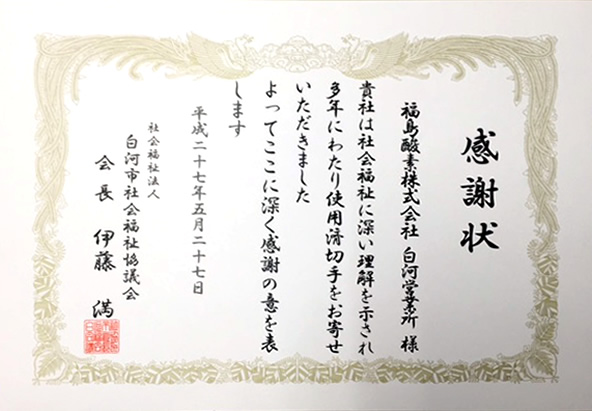 感謝状
福島酸素株式会社 白河営業所 様
貴社は社会福祉に深い理解を示され
多年にわたり使用済切手をお寄せ
いただきました
よってここに深く感謝の意を表
します
平成二十七年五月二十七日
社会福祉法人
白河市社会福祉協議会
会長 伊藤 満